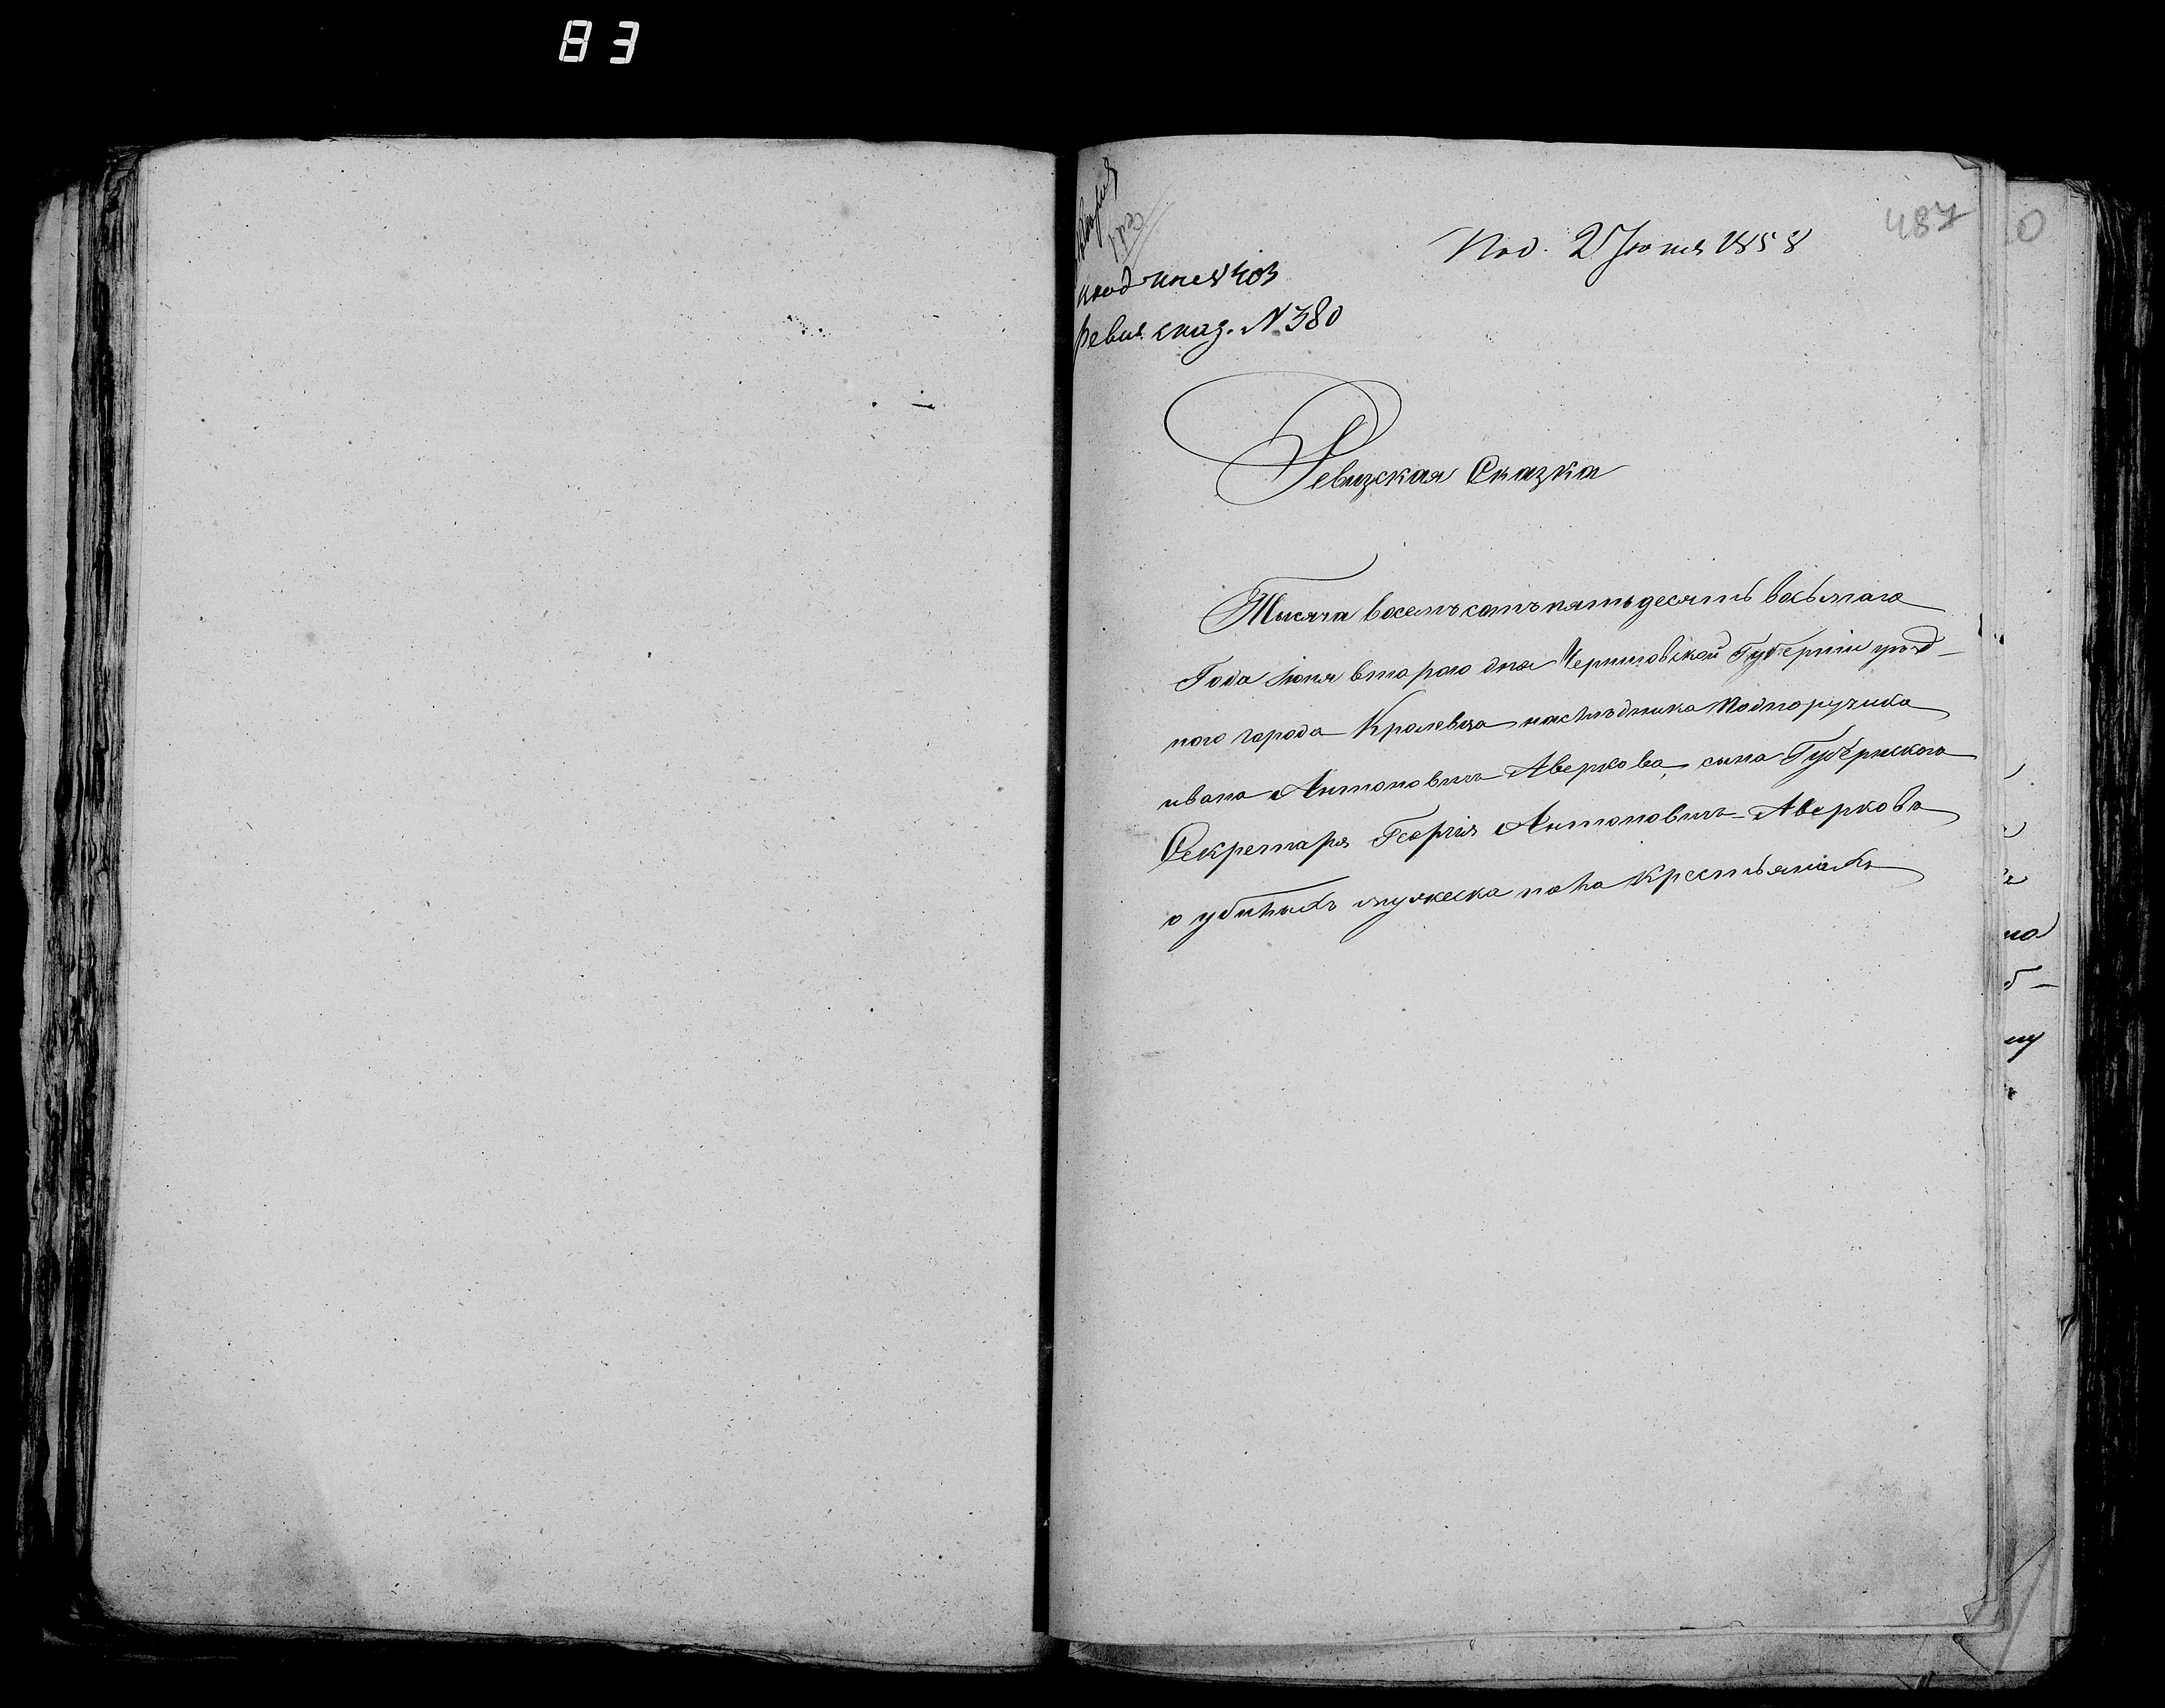 83
487
Под. 2 Июня 1858
ревиз. сказ. № 380
Ревизская Сказка
Тысяча восемъ сотъ пятьдесятъ восьмаго
Года Июня втораго дня Черниговской Губерніи уѣзд-
ного города Кролевца наслѣдника подпоручика
ивана Антоновичъ Аверкова, сына Губернского
Секретаря Георгія Антоновичъ Аверковъ
о мужеска пола крестьянахъ
0
ма
б-
му